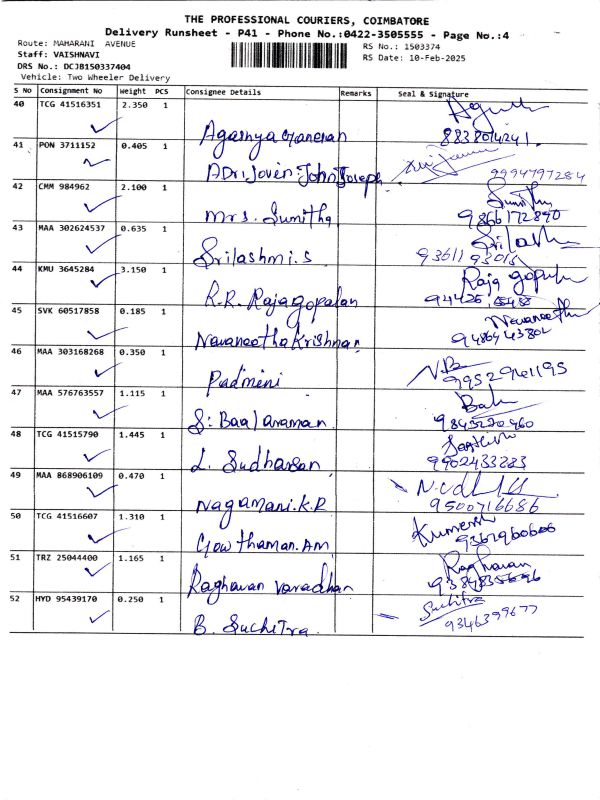 THE PROFESSIONAL COURIERS, COIMBATORE
Delivery Runsheet - P41 - Phone No.:0422-3505555 - Page No.:4
Route: MAHARANI AVENUE
Staff: VAISHNAVI
DRS No.: DCJB150337404
Vehicle: Two Wheeler Delivery
RS No.: 1503374
RS Date: 10-Feb-2025
S No Consignment No Weight PCS Consignee Details Remarks Seal & Signature
40 TCG 41516351 2.350 1
41 PON 3711152 0.405 1
ADri.Jovin.John Joseph 9994797284
42 CMM 984962 2.100 1
Mrs. Sumitha
43 MAA 302624537 0.635 1
Srilashmi.s
44 KMU 3645284 3.150 1
R.R. Rajagopalan
45 SVK 60517858 0.185 1
Navaneetha Krishnan
46 MAA 303168268 0.350 1
Padmini 9952941195
47 MAA 576763557 1.115 1
S. Baalaraman
48 TCG 41515790 1.445 1
L. Sudharsan 9902433283
49 MAA 868906109 0.470 1
Nagamani.K.R 9500716686
50 TCG 41516607 1.310 1
Gowthaman.AM
51 TRZ 25044400 1.165 1
Raghavan varadhan Raghavan
52 HYD 95439170 0.250 1
B. Suchitra Suchitra 9346399677